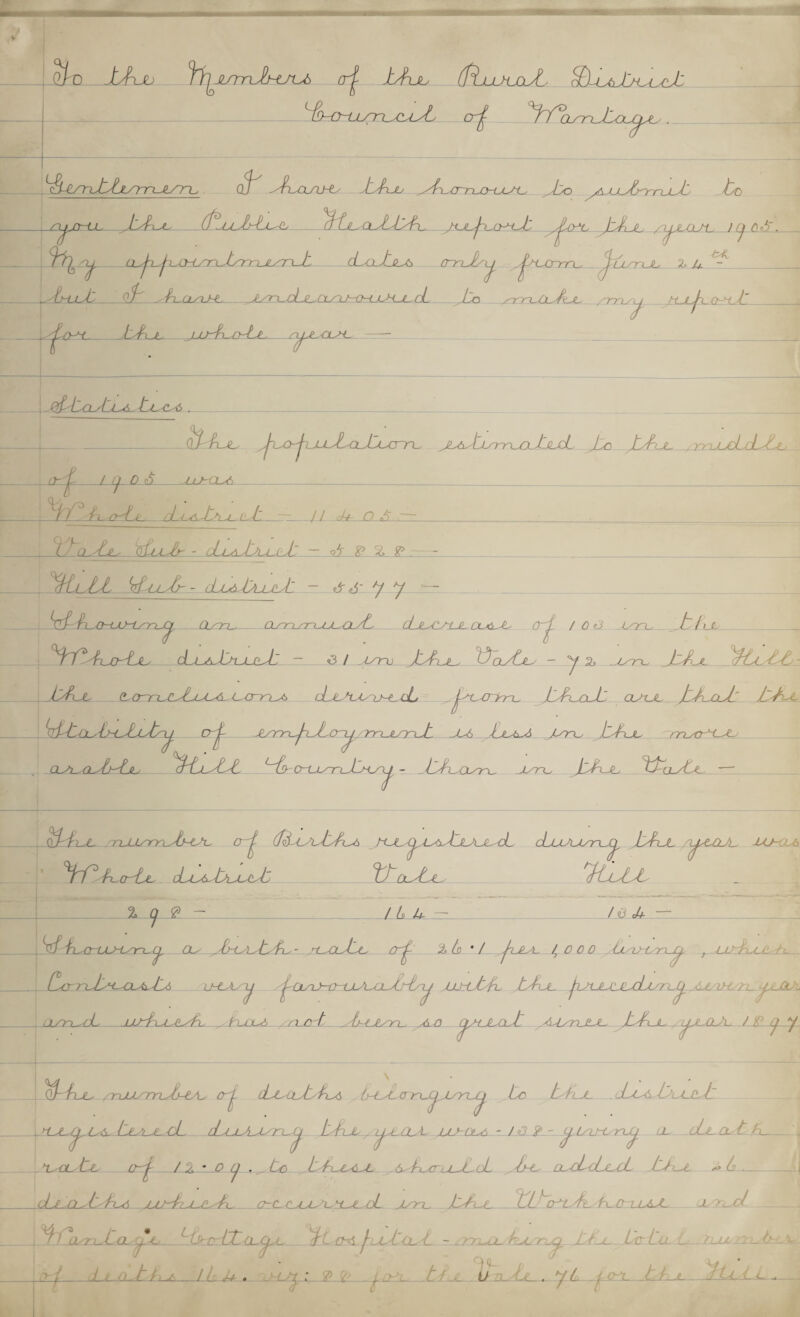 To the Members of the Rural District
Council of Wantage.
Gentlemen I have the honour to submit to
you the Public Health report for the year 1905.
My appointment dates only from June 24th
but I have endeavoured to make my report
for the whole year —
Statistics.
The population estimated to the middle
of 1905 was
Whole district - 11405 —
Vale Sub-district - 5828 -
Hill Sub-district - 5577 —
Showing an annual decrease of 103 in the
Whole district - 31 in the Vale - 72 in the Hill
the conclusions derived from that are that the
Stability of employment is less in the more
arable Hill Country - than in the Vale —
The number of Births registered during the year was
Whole district Vale Hill
298 - 164 - 134 —
Showing a birth-rate of 26·1 per 1,000 living, which
Contrasts very favourably with the preceding seven years
and which has not been so great since the year 1897
The number of deaths belonging to the district
registered during the year was - 138 - giving a death
rate of 12·09. to these should be added the 26.
deaths which occurred in the Workhouse and
Wantage Cottage Hospital - making the total number
of deaths 164. viz: 88 for the Vale. 76 for the Hill.